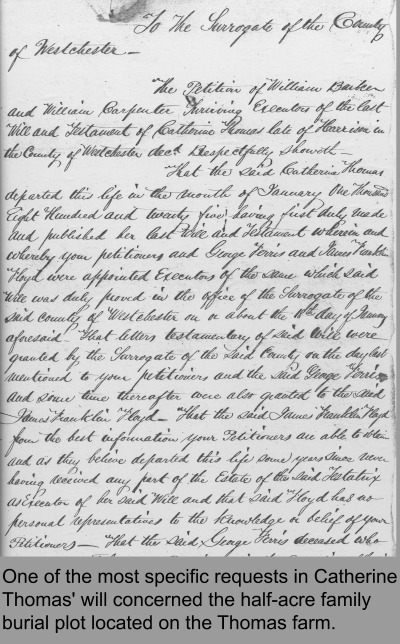 To The Surrogate of the County
of Westchester —
The Petition of William Barker
and William Carpenter Surviving Executors of the last
Will and Testament of Catherine Thomas late of Harrison in
the County of Westchester decd. Respectfully sheweth
That the said Catherine Thomas
departed this life in the month of January One Thousand
Eight Hundred and twenty five having first duly made
and published her last Will and Testament wherein and
whereby your petitioners and George Ferris and James Franklin
Floyd were appointed Executors of the same which said
Will was duly proved in the office of the Surrogate of the
said county of Westchester on or about the day of January
aforesaid — That letters testamentary of said Will were
granted by the Surrogate of the said County on the day last
mentioned to your petitioners and the said George Ferris
and some time thereafter were also granted to the said
James Franklin Floyd — That the said James Franklin Floyd
from the best information your Petitioners are able to obtain
and as they believe departed this life some years since never
having received any part of the Estate of the said Testatrix
as Executor of her said Will and that said Floyd has no
personal representatives to the knowledge or belief of your
Petitioners — That the said George Ferris deceased who
One of the most specific requests in Catherine
Thomas' will concerned the half-acre family
burial plot located on the Thomas farm.